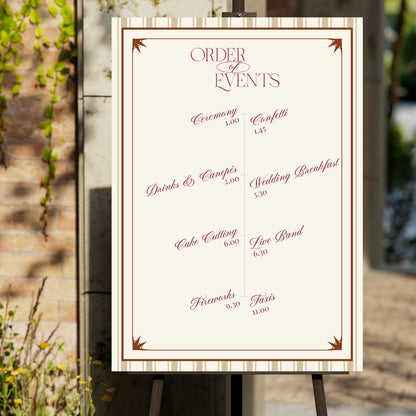 ORDER
of
EVENTS
Ceremony
1.00
Confetti
1.45
Drinks & Canapés
2.00
Wedding Breakfast
3.30
Cake Cutting
6.00
Live Band
6.30
Fireworks
9.30
Taxis
11.00